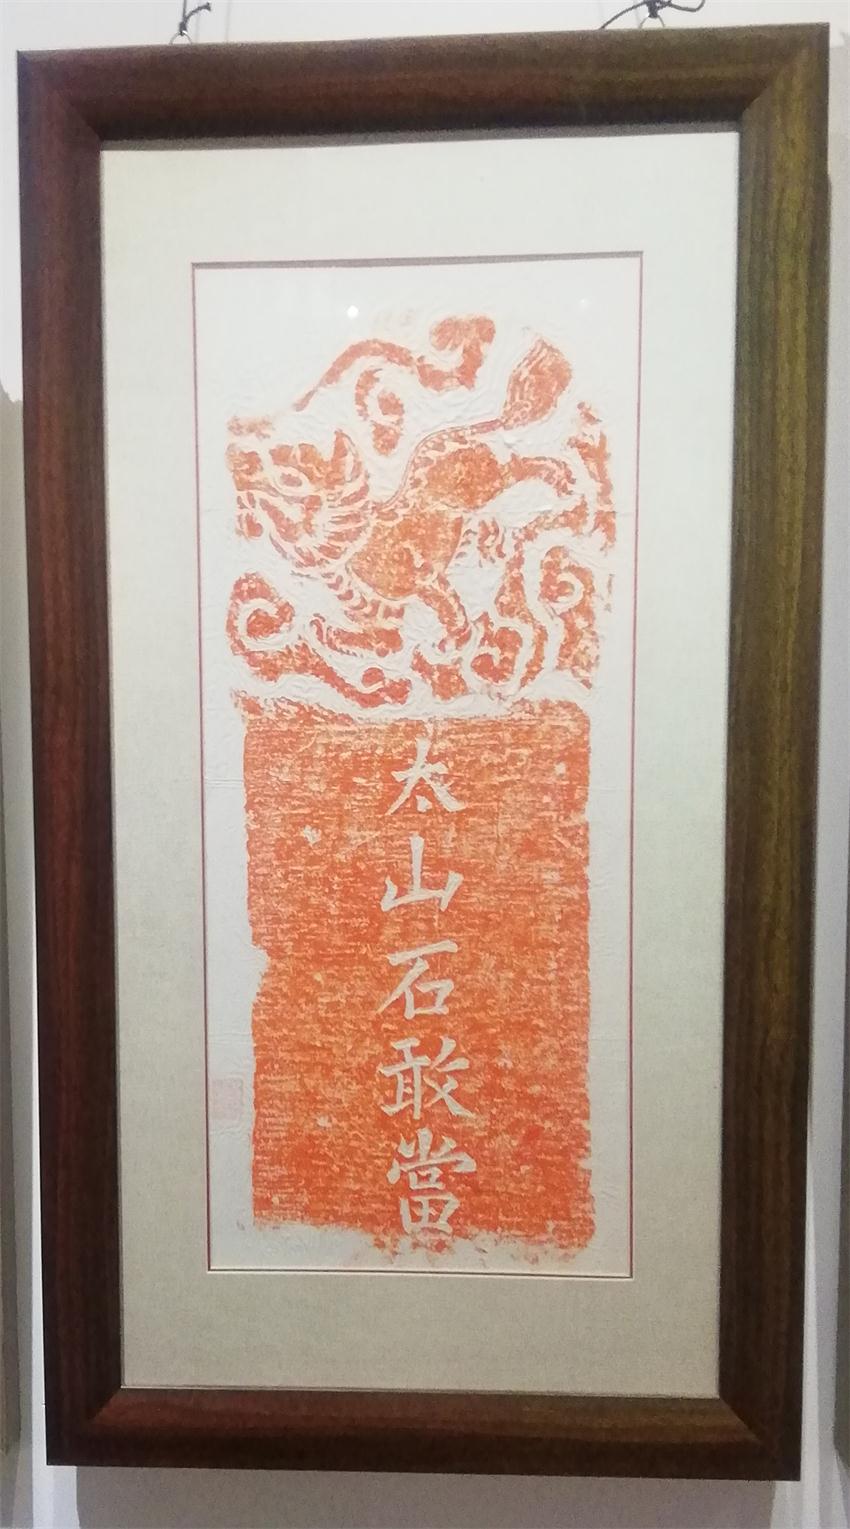 太山石敢當